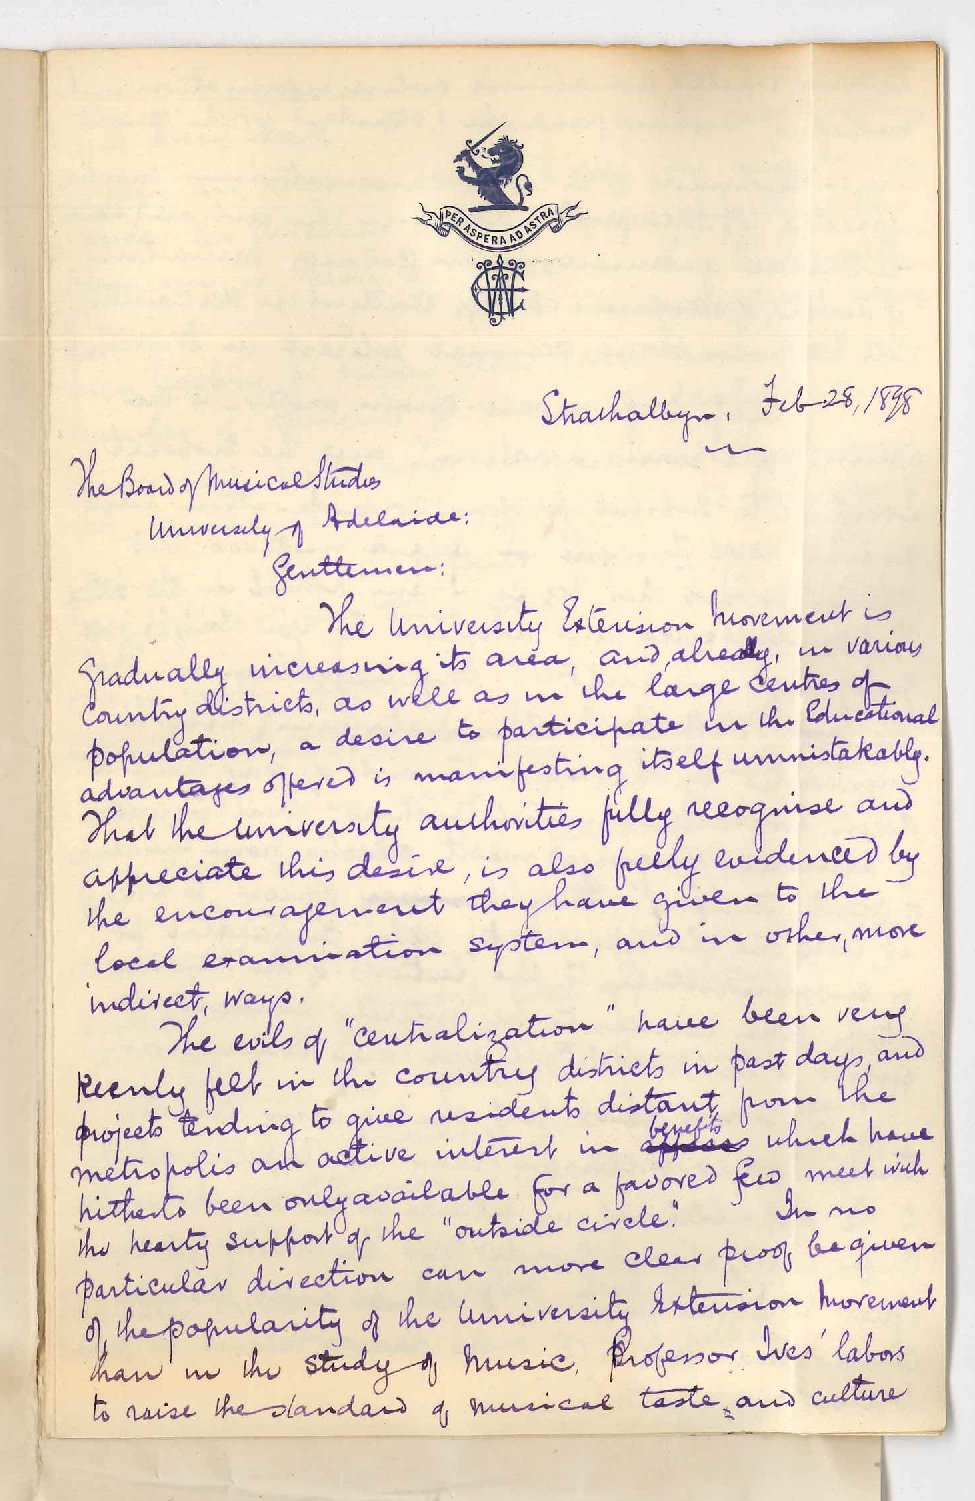 PER ASPERA AD ASTRA
Strathalbyn, Feb 28, 1898
The Board of Musical Studies
University of Adelaide:
Gentlemen:
The University Extension Movement is
gradually increasing its area, and, already, in various
country districts, as well as in the large centres of
population, a desire to participate in the Educational
advantages offered is manifesting itself unmistakably.
That the University authorities fully recognise and
appreciate this desire, is also freely evidenced by
the encouragement they have given to the
local examination system, and in other, more
indirect, ways.
The evils of "centralization" have been very
keenly felt in the country districts in past days, and
projects tending to give residents distant from the
benefits
metropolis an active interest in which have
hitherto been only available for a favored few meet with
the hearty support of the "outside circle." In no
particular direction can more clear proof be given
of the popularity of the University Extension Movement
than in the study of Music. Professor Ives' labors
to raise the standard of musical taste and culture